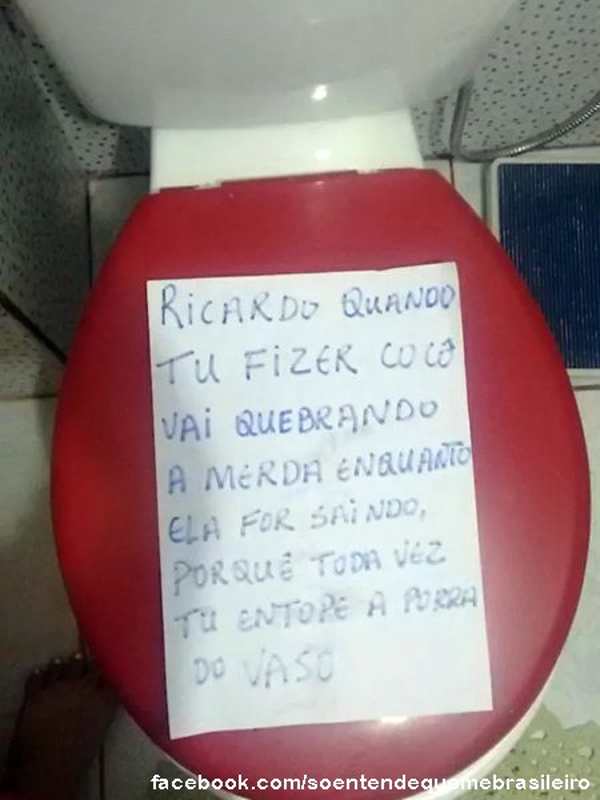 RICARDO QUANDO
TU FIZER COCÔ
VAI QUEBRANDO
A MERDA ENQUANTO
ELA FOR SAINDO,
PORQUÊ TODA VEZ
TU ENTOPE A PORRA
DO VASO
facebook.com/soentendequemebrasileiro